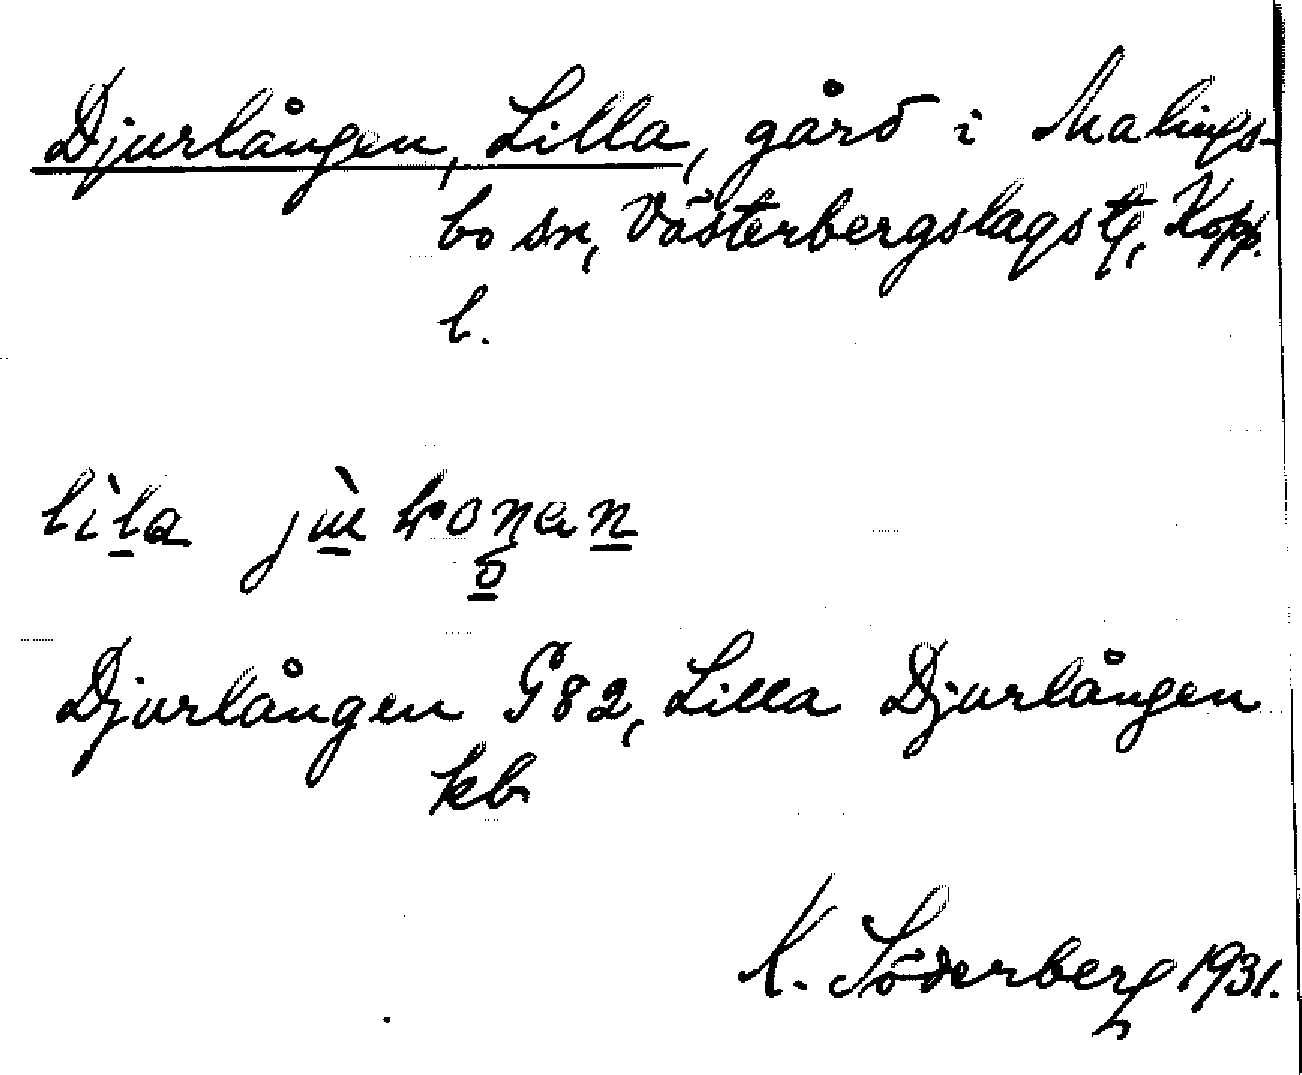 Djurlången, Lilla, gård i Malings-
bo sn, Västerbergslags tg, Kopp.
l.
Djurlången G82, Lilla Djurlången
kb
K. Söderberg 1931.